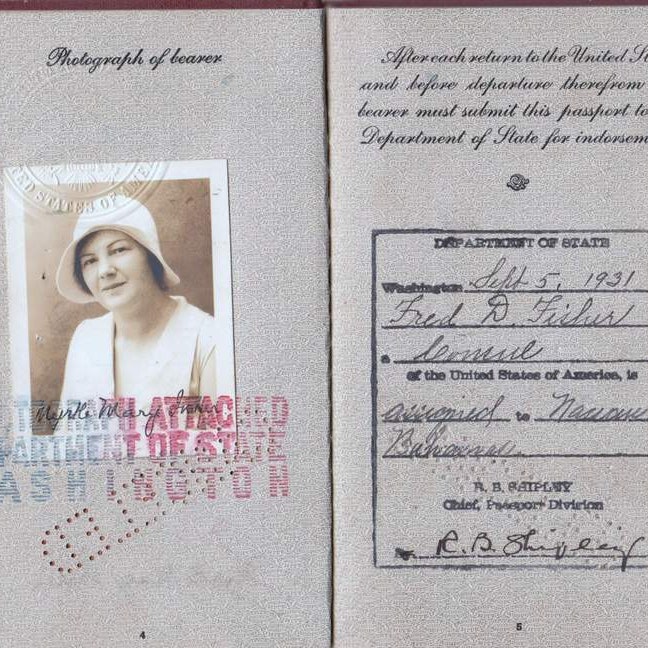 Photograph of bearer
UNITED STATES OF AMERICA
Myrtle Mary Fisher
PHOTOGRAPH ATTACHED
DEPARTMENT OF STATE
WASHINGTON
4
After each return to the United St
and before departure therefrom
bearer must submit this passport to
Department of State for indorsem
DEPARTMENT OF STATE
Washington Sept 5, 1931
Fred D. Fisher
a Consul
of the United States of America, is
assigned to Nassau
Bahamas.
R. B. SHIPLEY
Chief, Passport Division
R. B. Shipley
5